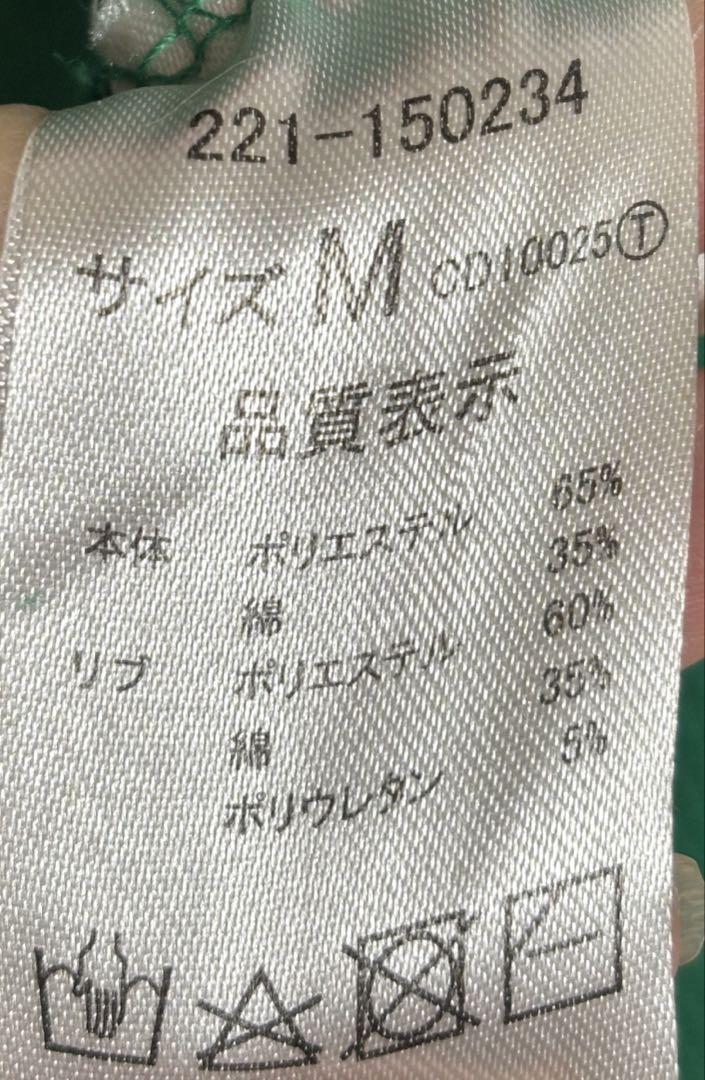 221-150234
サイズ M CD10025Ⓣ
品質表示
本体 ポリエステル 65%
綿 35%
リブ ポリエステル 60%
綿 35%
ポリウレタン 5%